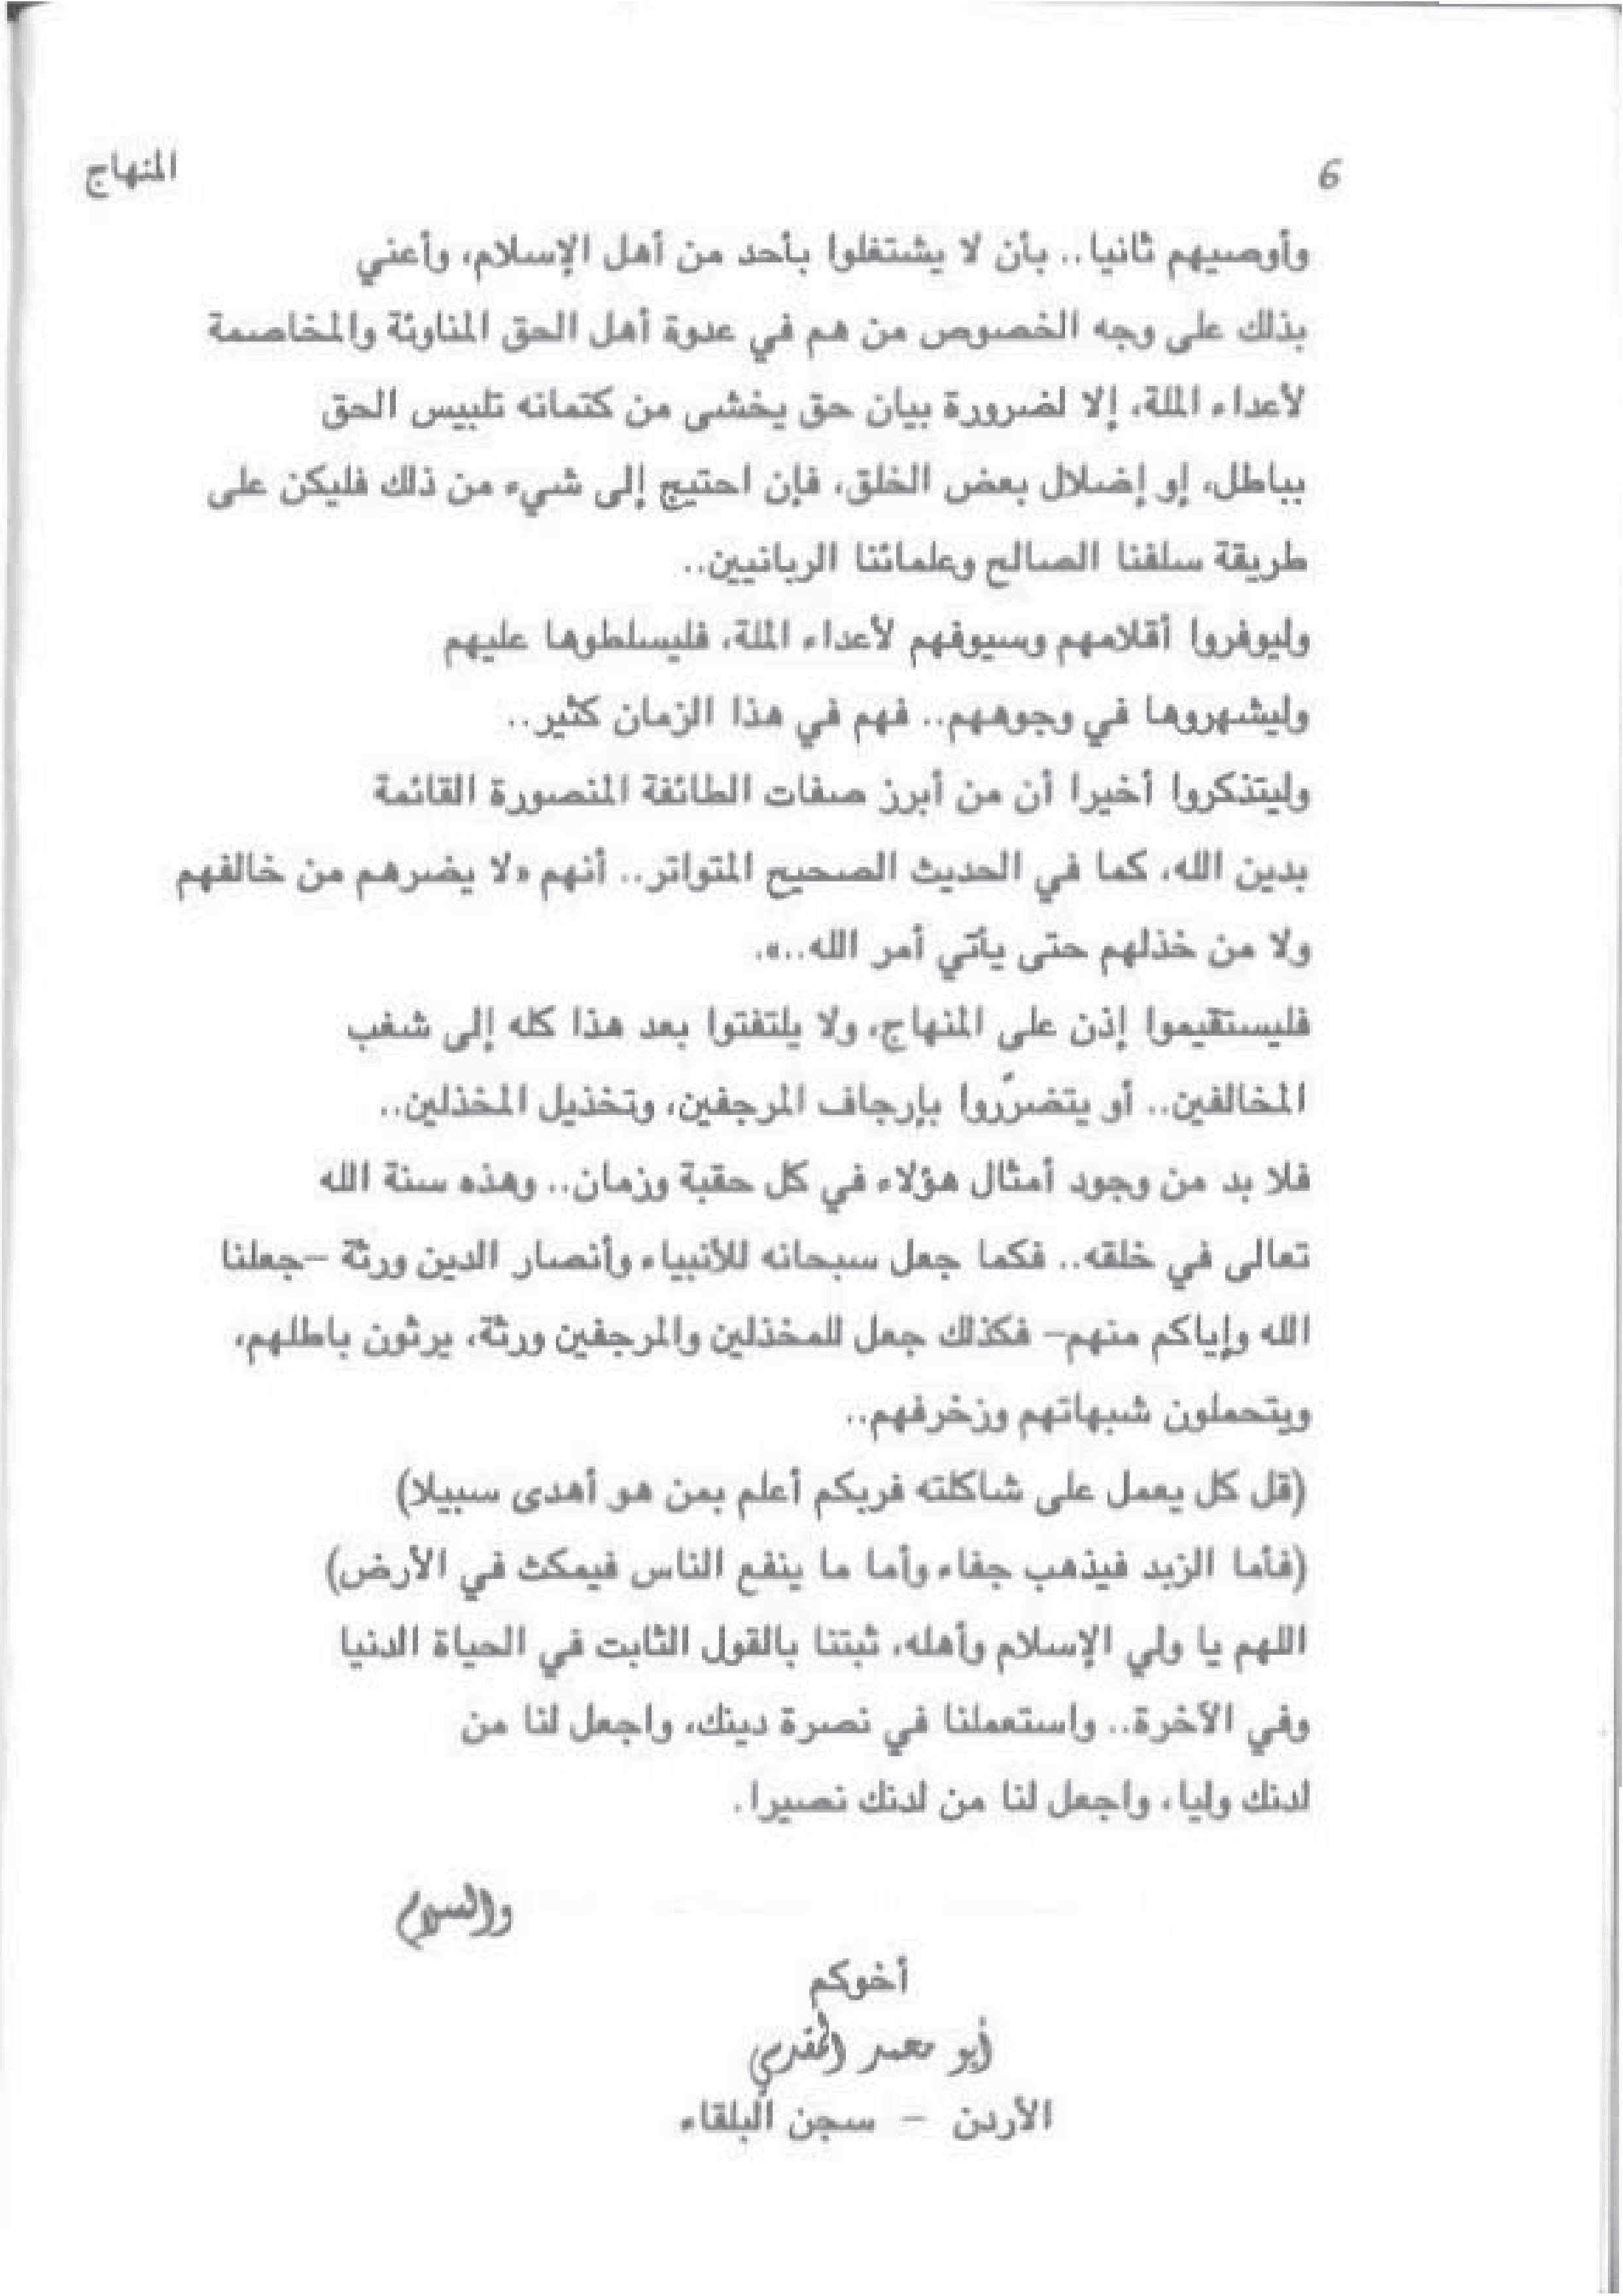 6
المنهاج
وأوصيهم ثانيا.. بأن لا يشتغلوا بأحد من أهل الإسلام، وأعني
بذلك على وجه الخصوص من هم في عدوة أهل الحق المناوئة والمخاصمة
لأعداء الملة، إلا لضرورة بيان حق يخشى من كتمانه تلبيس الحق
بباطل، إو إضلال بعض الخلق، فإن احتيج إلى شيء من ذلك فليكن على
طريقة سلفنا الصالح وعلمائنا الربانيين..
وليوفروا أقلامهم وسيوفهم لأعداء الملة، فليسلطوها عليهم
وليشهروها في وجوههم.. فهم في هذا الزمان كثير..
وليتذكروا أخيرا أن من أبرز صفات الطائفة المنصورة القائمة
بدين الله، كما في الحديث الصحيح المتواتر.. أنهم «لا يضرهم من خالفهم
ولا من خذلهم حتى يأتي أمر الله..».
فليستقيموا إذن على المنهاج، ولا يلتفتوا بعد هذا كله إلى شغب
المخالفين.. أو يتضرّروا بإرجاف المرجفين، وتخذيل المخذلين..
فلا بد من وجود أمثال هؤلاء في كل حقبة وزمان.. وهذه سنة الله
تعالى في خلقه.. فكما جعل سبحانه للأنبياء وأنصار الدين ورثة –جعلنا
الله وإياكم منهم– فكذلك جعل للمخذلين والمرجفين ورثة، يرثون باطلهم،
ويتحملون شبهاتهم وزخرفهم..
(قل كل يعمل على شاكلته فربكم أعلم بمن هو أهدى سبيلا)
(فأما الزبد فيذهب جفاء وأما ما ينفع الناس فيمكث في الأرض)
اللهم يا ولي الإسلام وأهله، ثبتنا بالقول الثابت في الحياة الدنيا
وفي الآخرة.. واستعملنا في نصرة دينك، واجعل لنا من
لدنك وليا، واجعل لنا من لدنك نصيرا.
والسلام
أخوكم
أبو محمد المقدسي
الأردن – سجن البلقاء